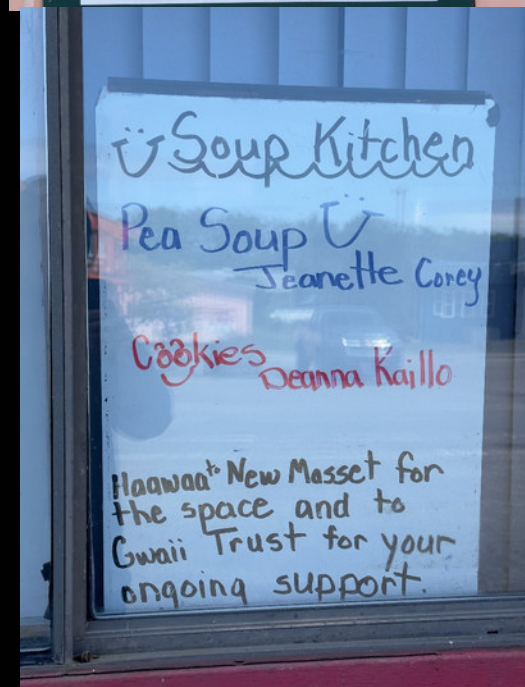 Soup Kitchen
Pea Soup
Jeanette Corey
Cookies
Deanna Kaillo
Haawaa to New Masset for
the space and to
Gwaii Trust for your
ongoing support.